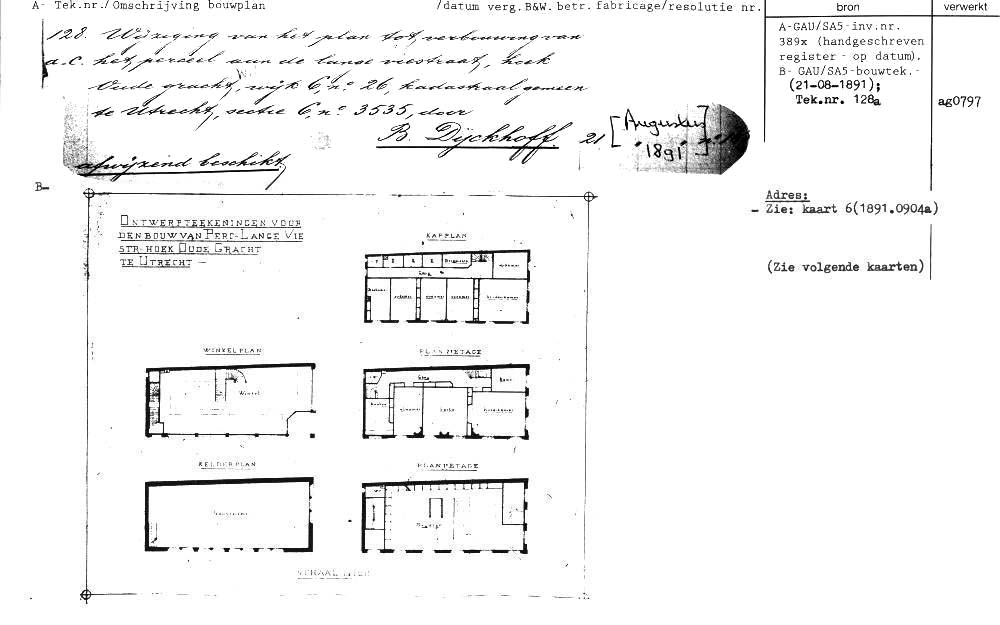 A- Tek.nr./Omschrijving bouwplan /datum verg.B&W.betr.fabricage/resolutie nr. bron verwerkt
128. Wijziging van het plan tot verbouwing van
a.c. het perseel aan de lange viestraat, hoek
Oude gracht, wijk C, no. 26, kadastraal gemeen
te Utrecht, sectie C, no. 3535, door
B. Dijckhoff. 21 [Augustus
1891]
afwijzend beschikt.
A-GAU/SA5-inv.nr.
389x (handgeschreven
register - op datum).
B- GAU/SA5-bouwtek.-
(21-08-1891);
Tek.nr. 128a ag0797
Adres:
- Zie: kaart 6(1891.0904a)
(Zie volgende kaarten)
B-
ONTWERPTEEKENINGEN VOOR
DEN BOUW VAN PERC-LANGE VIE
STR-HOEK OUDE GRACHT
TE UTRECHT —
KAPPLAN
Gang
WINKELPLAN
Winkel
PLAN 2E ETAGE
Gang
KELDERPLAN
PLAN 1E ETAGE
SCHAAL